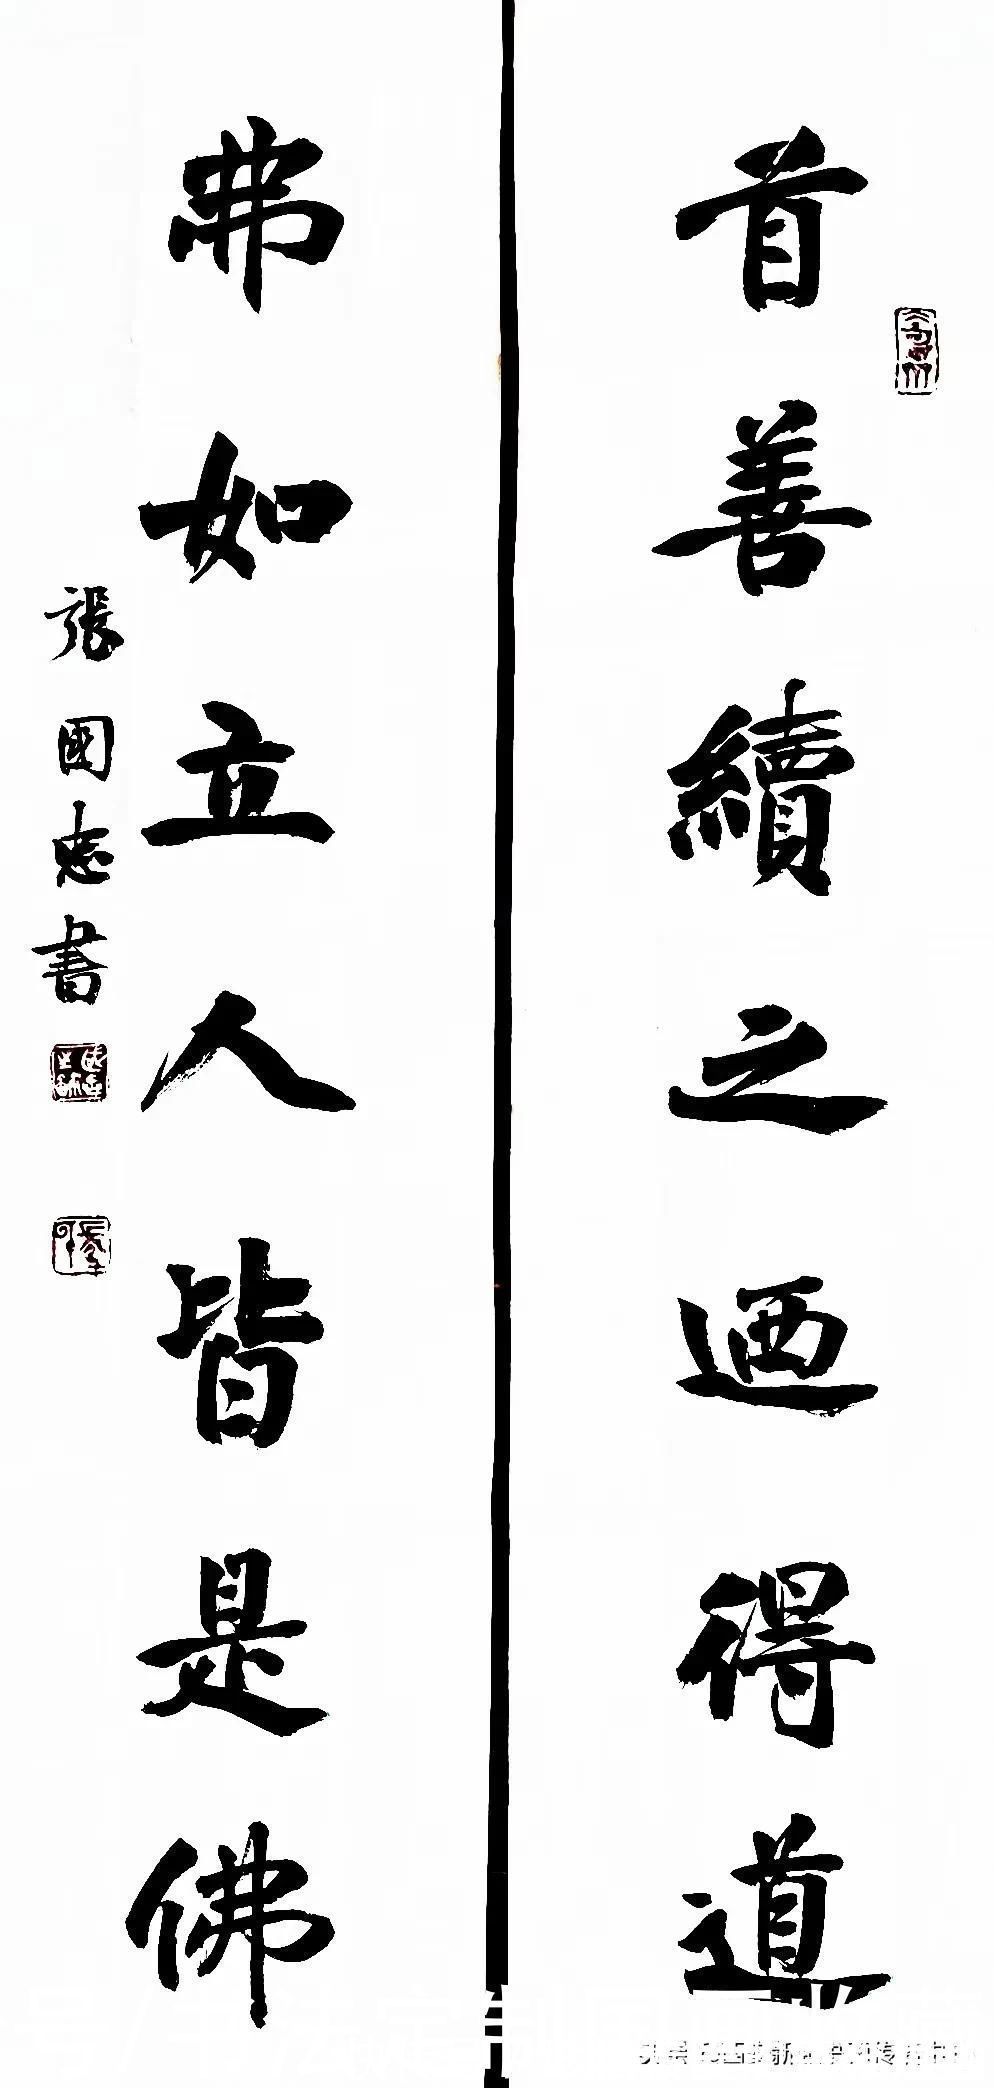 首善續之迺得道
弗如立人皆是佛
張國志書